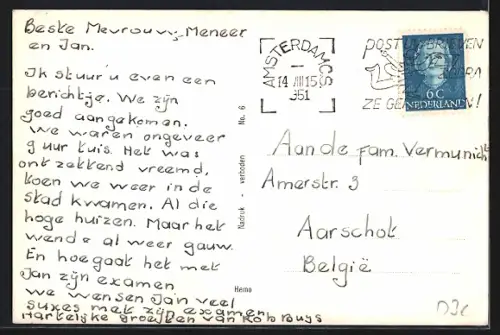 Beste Mevrouw, Meneer
en Jan.
Ik stuur u even een
berichtje. We zijn
goed aangekomen.
We waren ongeveer
9 uur tuis. Het was
ontzettend vreemd,
toen we weer in de
stad kwamen. Al die
hoge huizen. Maar het
wende al weer gauw.
En hoe gaat het met
Jan zijn examen
we wensen Jan veel
suxes met zijn examen
Hartelijke groetjes van Rob Buys
No. 6
Nadruk - verboden
Hema
AMSTERDAM CS
14 VIII 15
1951
POST UW BRIEVEN
ZE GE
6C
NEDERLAND
Aan de fam. Vermunicht
Amerstr. 3
Aarschot
België